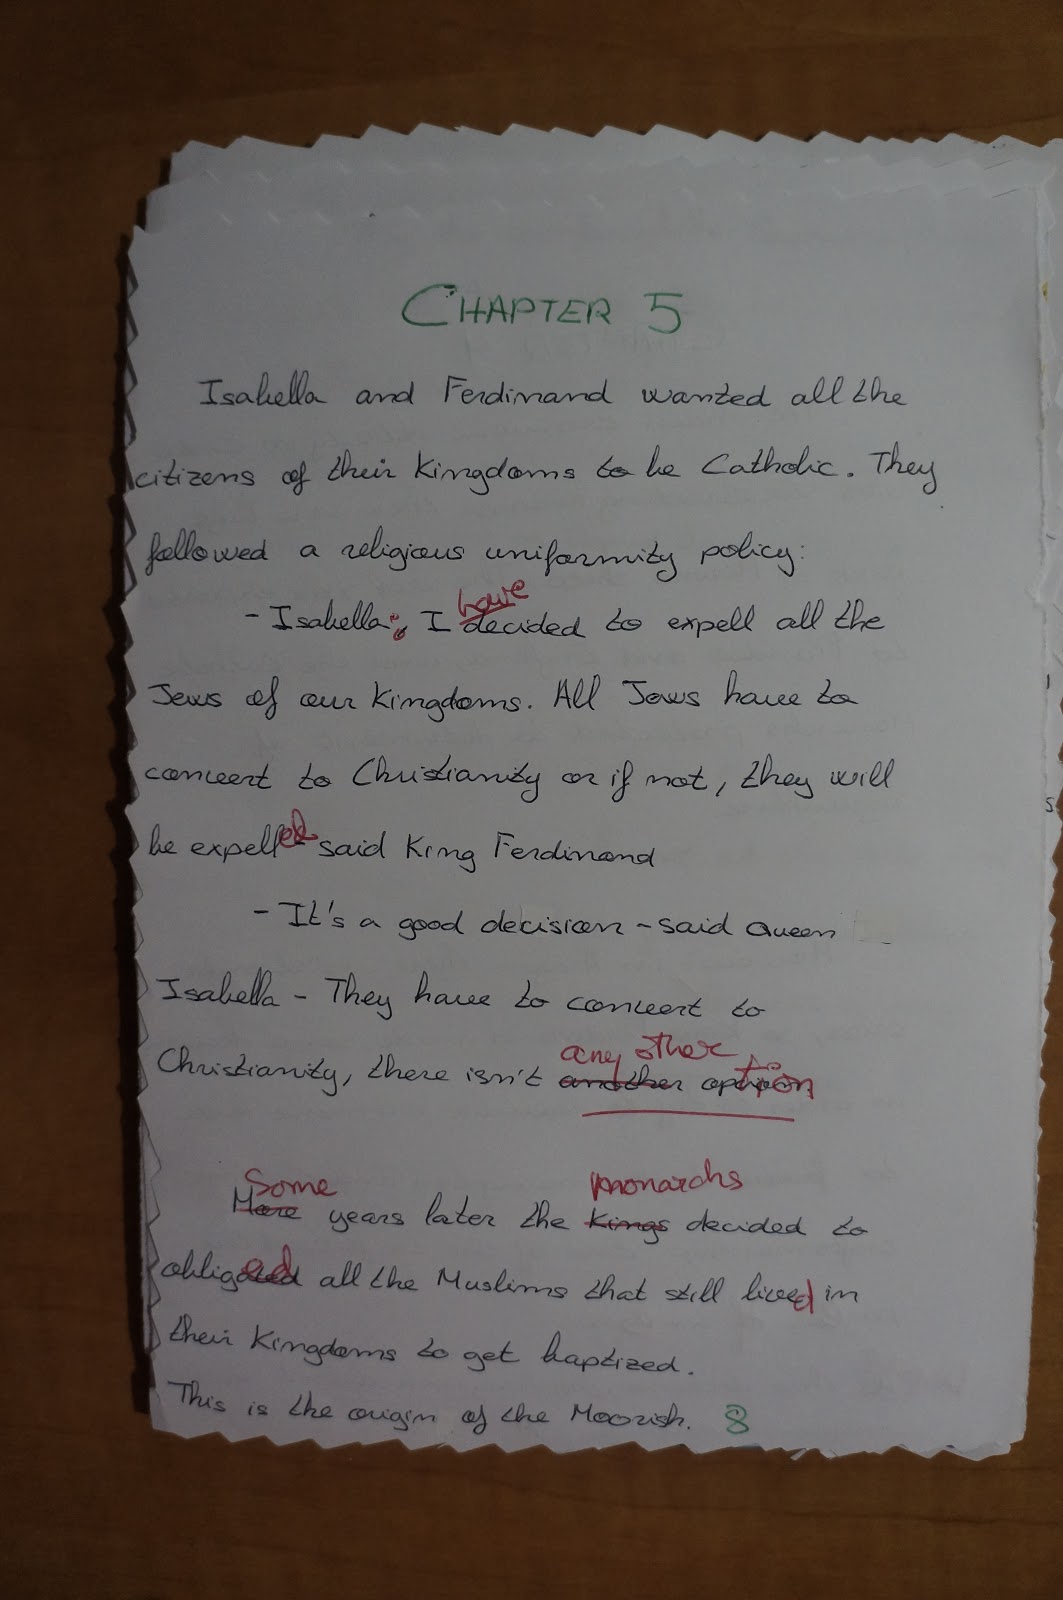 CHAPTER 5
Isabella and Ferdinand wanted all the
citizens of their Kingdoms to be Catholic. They
followed a religious uniformity policy:
have
- Isabella: I decided to expell all the
Jews of our Kingdoms. All Jews have to
convert to Christianity or if not, they will
be expelled - said King Ferdinand
- It's a good decision - said Queen
Isabella - They have to convert to
any other
Christianity, there isn't another option
Some monarchs
More years later the Kings decided to
obligated all the Muslims that still lived in
their Kingdoms to get baptized.
This is the origin of the Moorish. 8